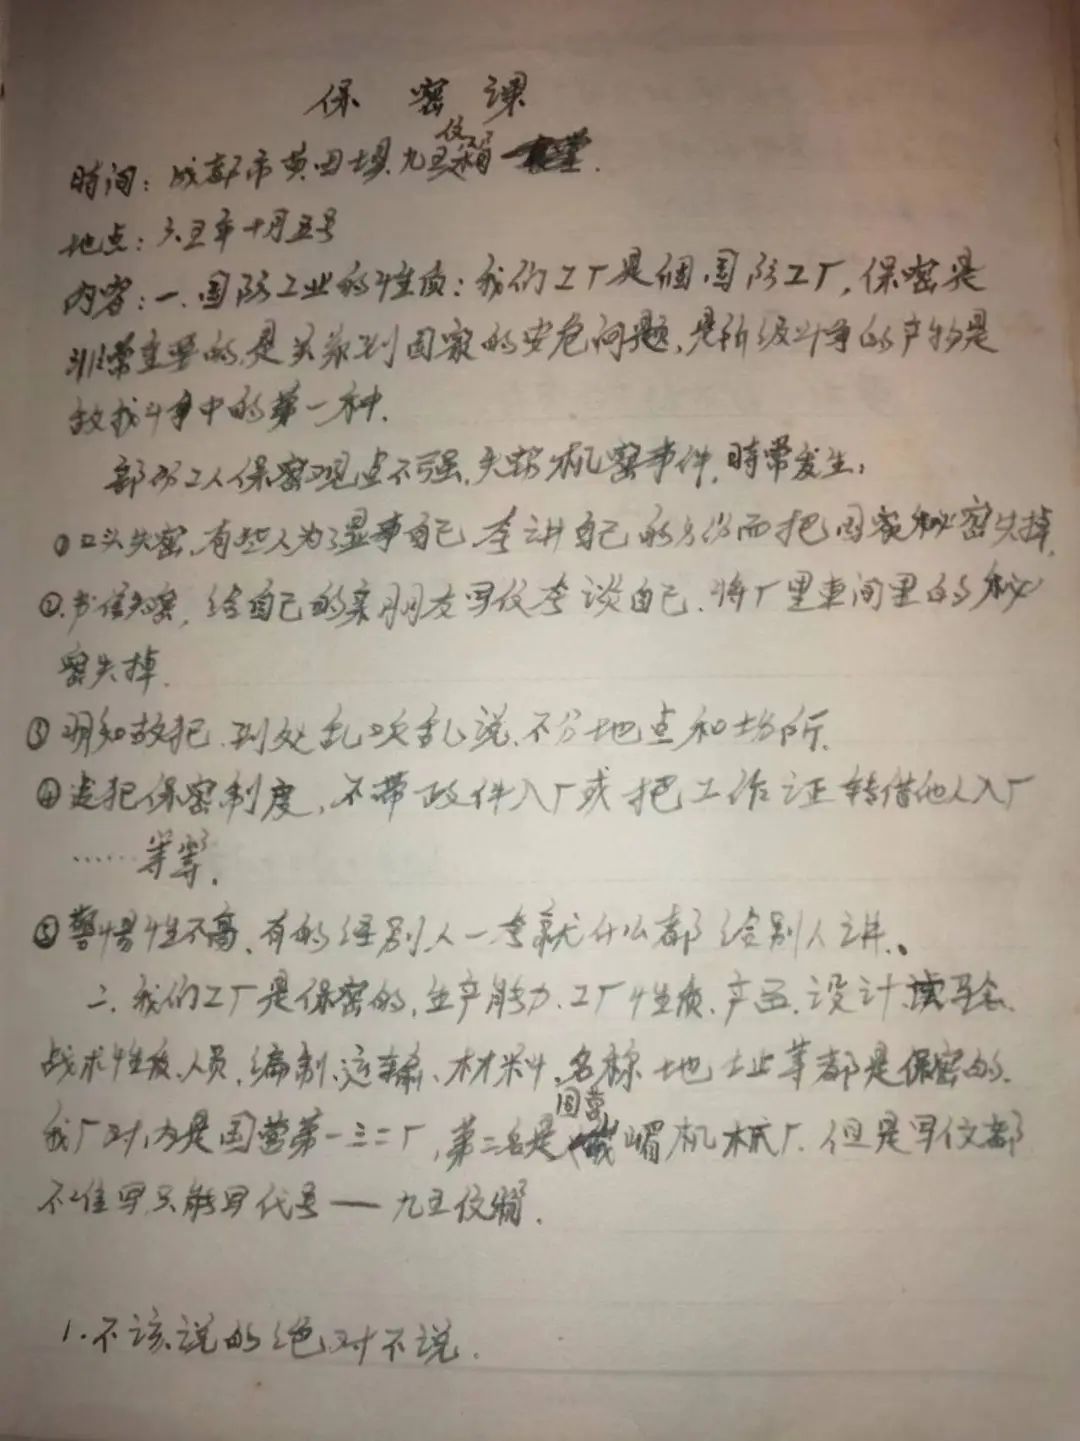 保密课
時间：成都市黄田坝九五仪箱
地点：六五年十月五号
内容：一.国防工业的性质：我们工厂是個国防工厂，保密是
非常重要的，是关系到国家的安危问题，是阶级斗争的产物是
敌我斗争中的第一种.
部份工人保密观点不强，失密机密事件，時常发生：
①口头失密，有些人为了显事自己，夸讲自己的身份而把国家秘密失掉.
②书信失密，给自己的亲朋友写仪夸谈自己.将厂里車间里的秘
密失掉.
③明知故犯.到处乱吹乱说.不分地点和场所.
④违犯保密制度，不带政件入厂或把工作证转借他人入厂
……等等.
⑤警惕性不高、有的经别人一夸就什么都给别人讲.
二.我们工厂是保密的，生产能力.工厂性质.产品.设计.试验.
战术性质.人员.编制.运输、材料.名称地址等都是保密的.
我厂对内是国营第一三二厂，第二名是国营峨嵋机械厂.但是写仪都
不准写只能写代号——九五仪箱.
1.不该说的绝对不说.